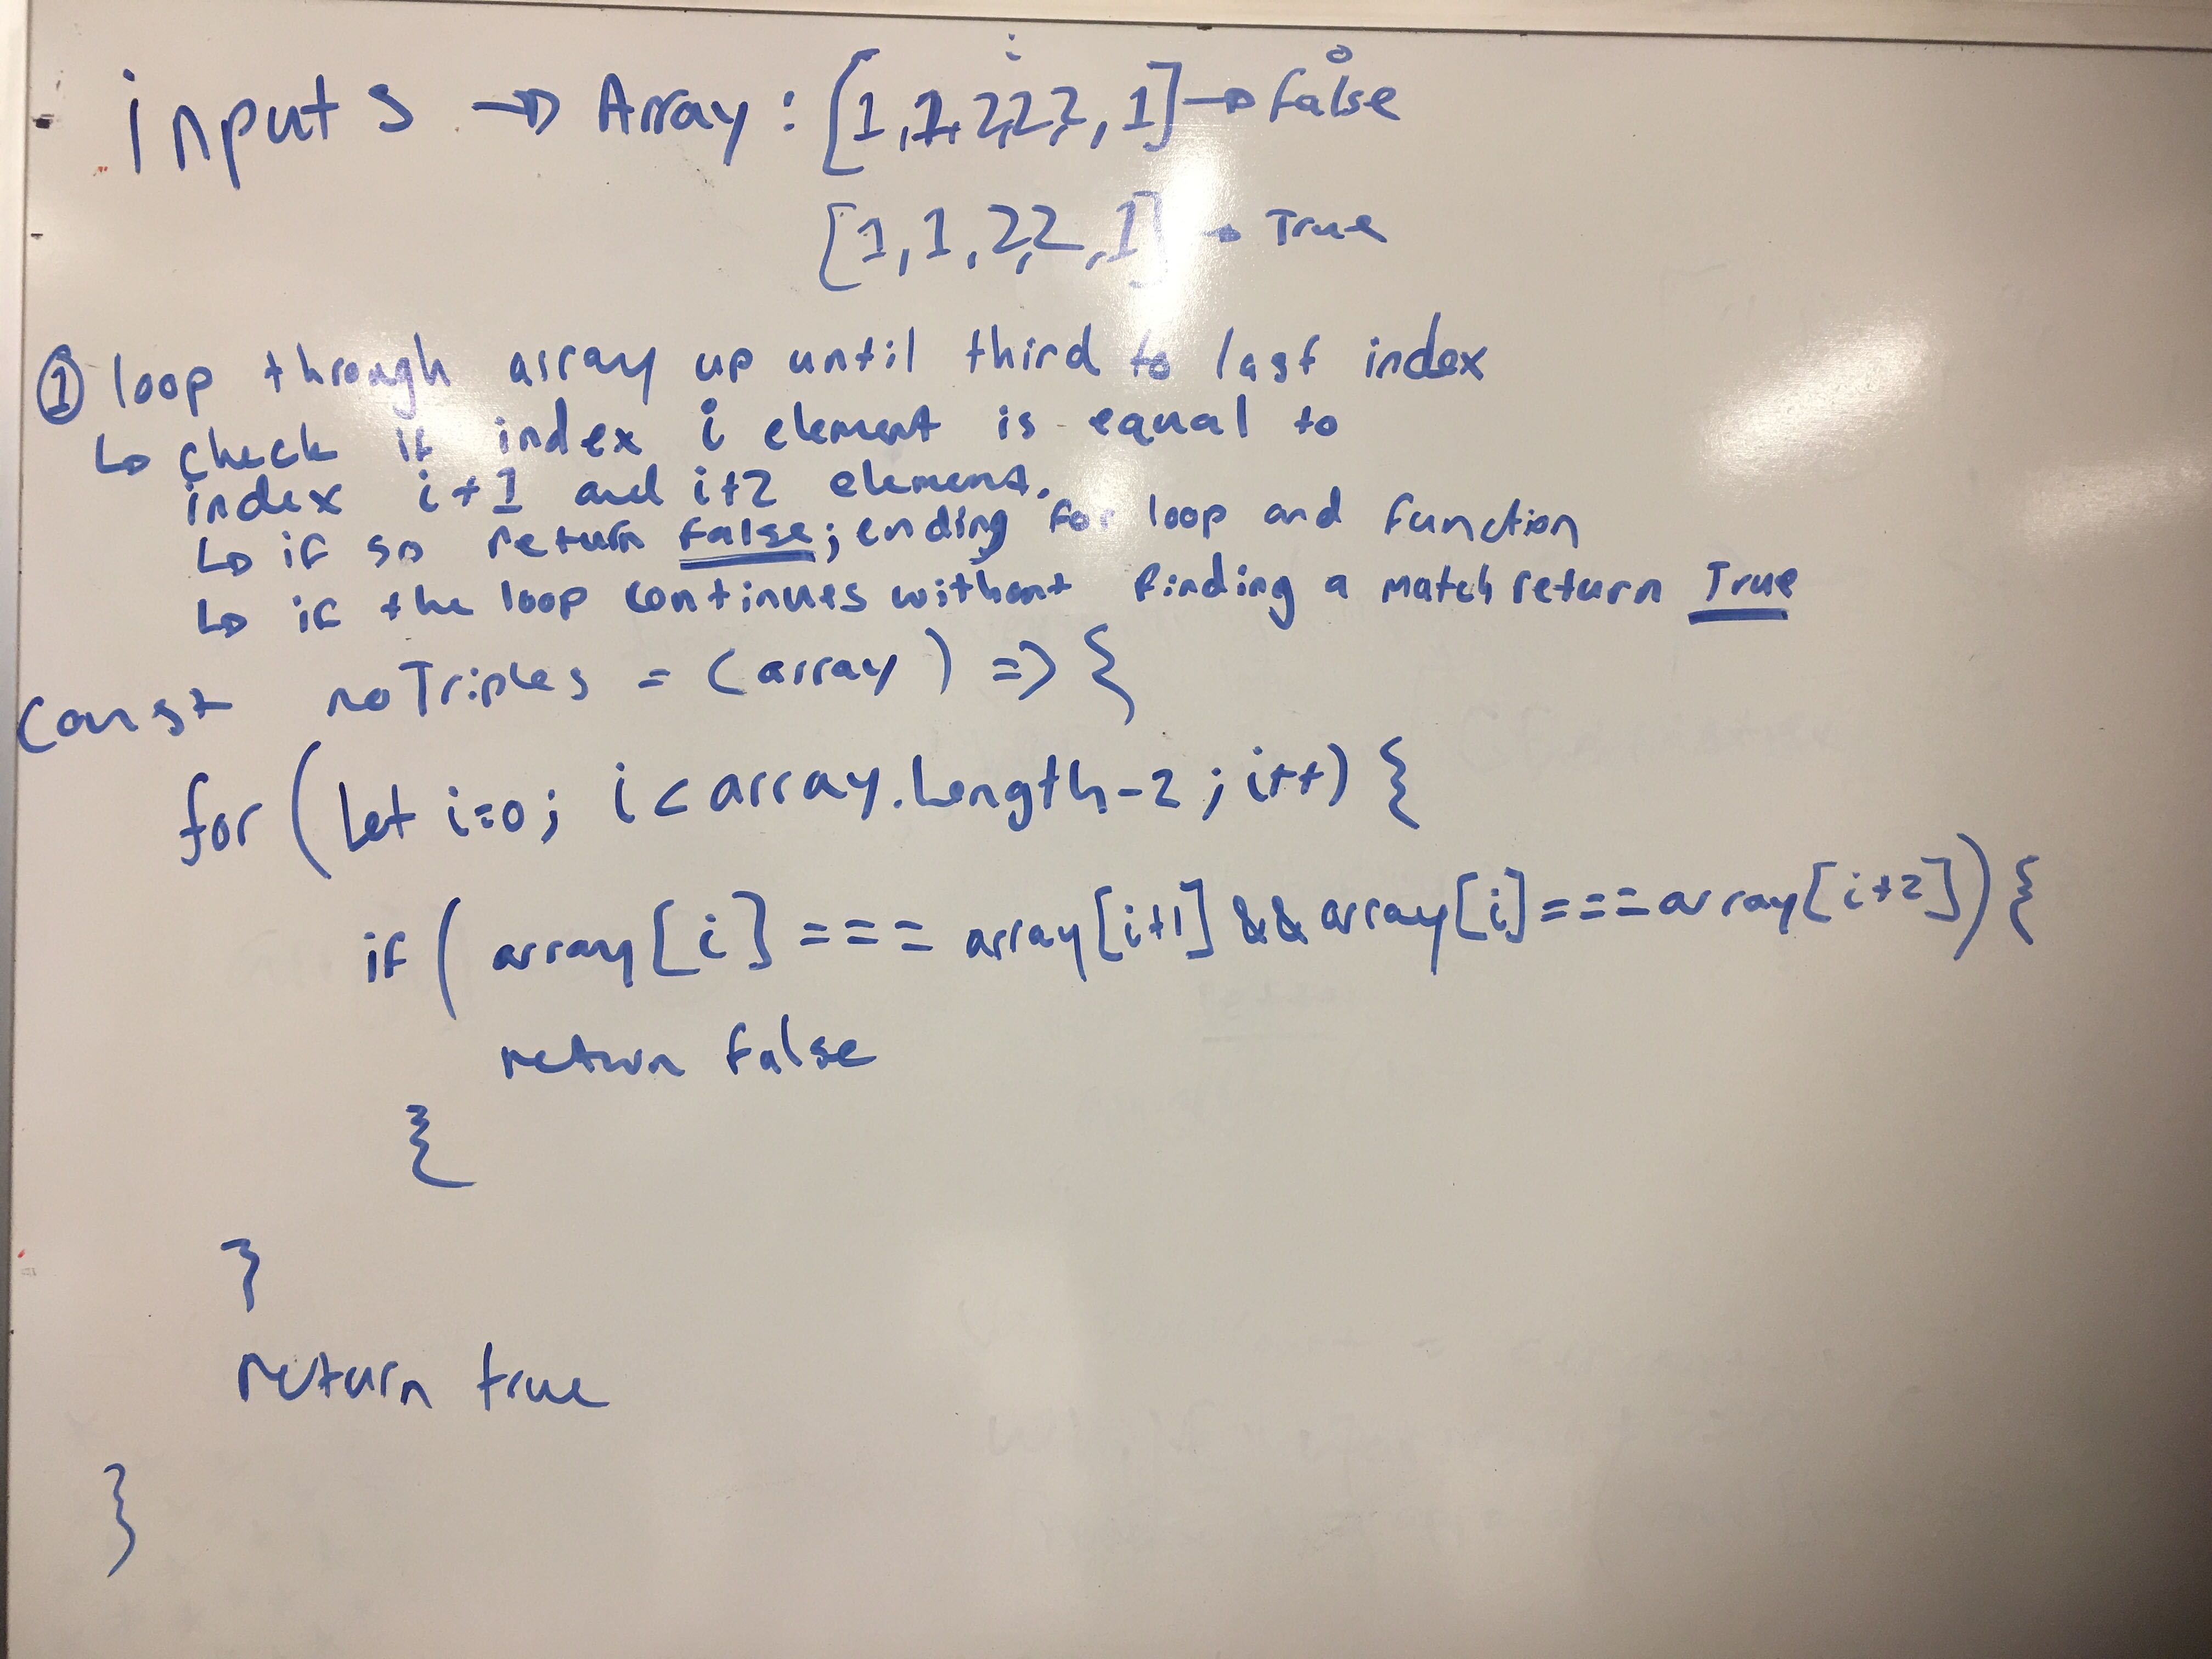 inputs → Array : [1,1,2,2,2,1] → false
[1,1,2,2,1] → True
① loop through array up until third to last index
↳ check if index i element is equal to
index i+1 and i+2 element.
↳ if so return false; ending for loop and function
↳ if the loop continues without finding a match return True
const noTriples = (array) => {
for (let i=0; i < array.length-2; i++) {
if (array[i] === array[i+1] && array[i] === array[i+2]) {
return false
{
}
return true
}